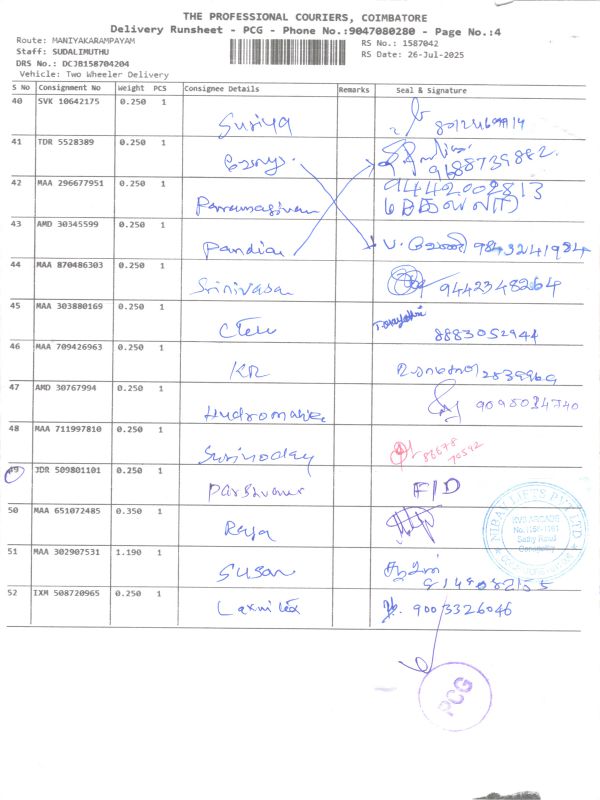 THE PROFESSIONAL COURIERS, COIMBATORE
Delivery Runsheet - PCG - Phone No.:9047080280 - Page No.:4
Route: MANIYAKARAMPAYAM
Staff: SUDALIMUTHU
DRS No.: DCJB158704204
Vehicle: Two Wheeler Delivery
RS No.: 1587042
RS Date: 26-Jul-2025
S No Consignment No Weight PCS Consignee Details Remarks Seal & Signature
40 SVK 10642175 0.250 1 Suriya
41 TDR 5528389 0.250 1 9688739882.
42 MAA 296677951 0.250 1 Parramasivan 9442002813
43 AMD 30345599 0.250 1 Pandian 9843241984
44 MAA 870486303 0.250 1 Srinivasa 9442348264
45 MAA 303880169 0.250 1 8883052944
46 MAA 709426963 0.250 1 KR
47 AMD 30767994 0.250 1 Hydromatike
48 MAA 711997810 0.250 1 Suriyoday 86678
70592
49 JDR 509801101 0.250 1 F/D
50 MAA 651072485 0.350 1 Raja
51 MAA 302907531 1.190 1 Susan
52 IXM 508720965 0.250 1 9003326046
NIBAV LIFTS PVT LTD
KVR ARCADE
Sathy Road
PCG